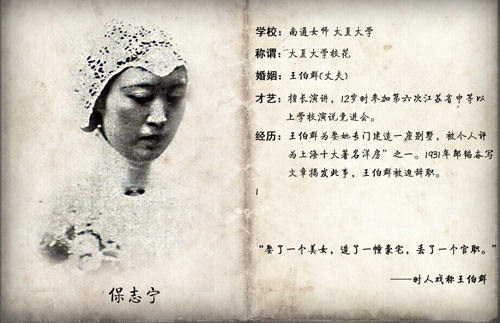 学校：南通女师 大夏大学
称谓：大夏大学校花
婚姻：王伯群(丈夫)
才艺：擅长演讲，12岁时参加第六次江苏省中等以
上学校演说竞进会。
经历：王伯群为娶她专门建造一座别墅，被个人评
为上海十大著名洋房”之一。1931年邹韬奋写
文章揭发此事，王伯群被迫辞职。
“娶了一个美女，造了一幢豪宅，丢了一个官职。”
——时人戏称王伯群
保志宁